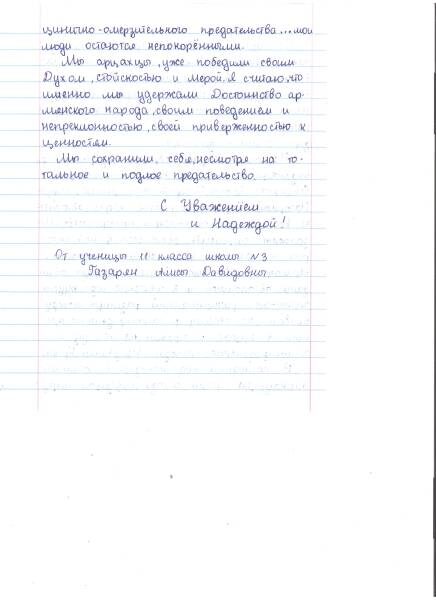 цинично-омерзительного предательства...мои
люди остаются непокорёнными.
Мы арцахцы, уже победили своим
Духом, стойкостью и мерой. Я считаю, что
именно мы удержали Достоинство ар-
мянского народа, своим поведением и
непреклонностью, своей приверженностью к
ценностям.
Мы сохранили себя, несмотря на то-
тальное и подлое предательство.
С Уважением
и Надеждой!
От ученицы 11 класса школы №3
Газарян Алисы Давидовны